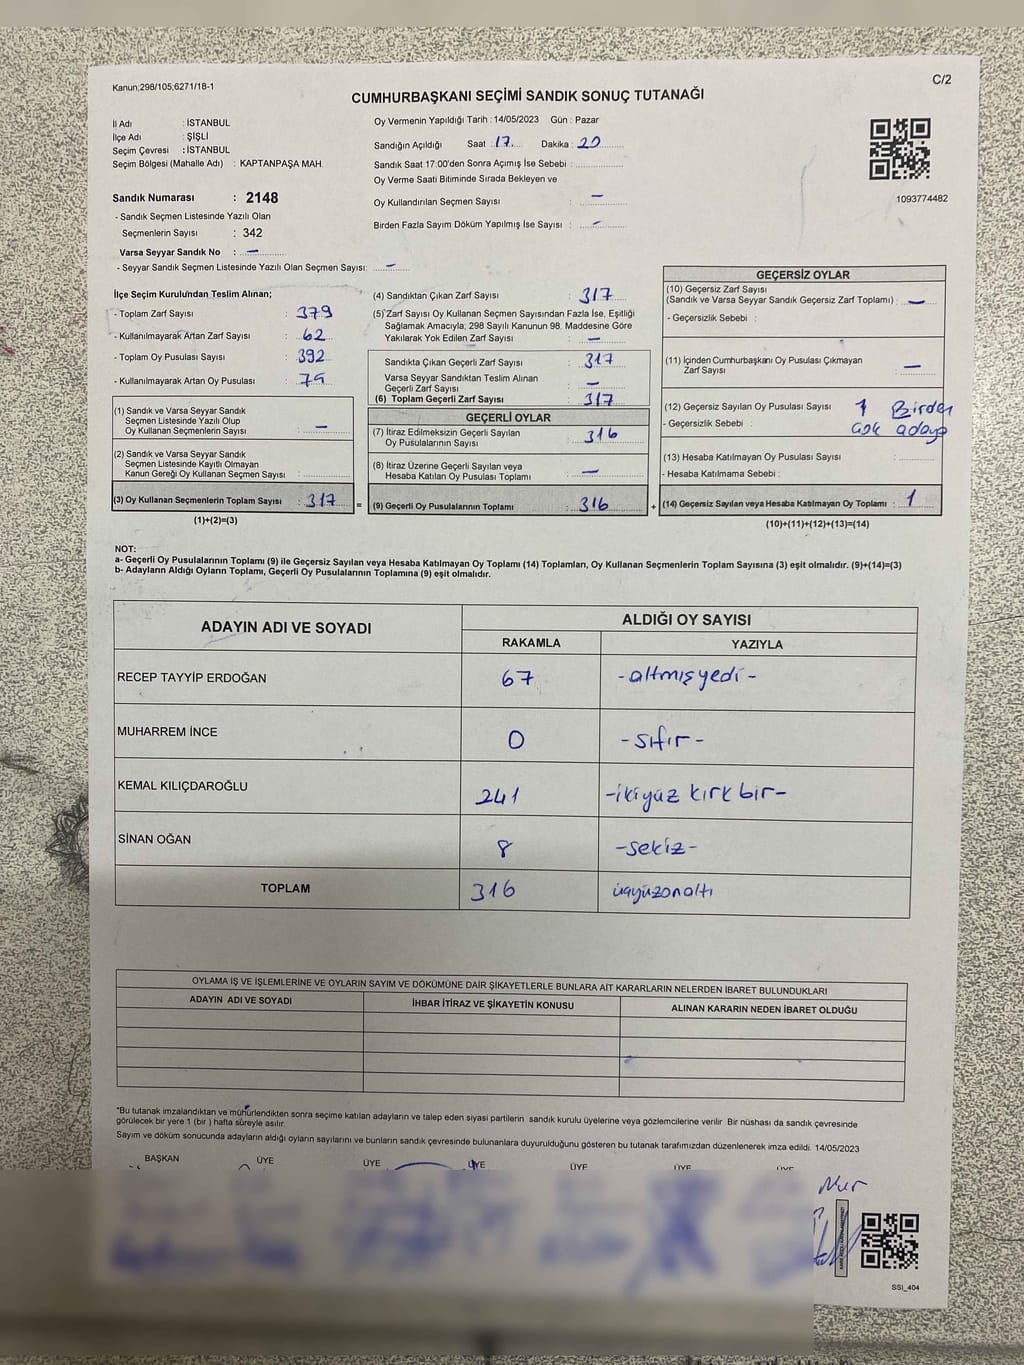 Kanun;298/105;6271/18-1
C/2
CUMHURBAŞKANI SEÇİMİ SANDIK SONUÇ TUTANAĞI
İl Adı : İSTANBUL
İlçe Adı : ŞİŞLİ
Seçim Çevresi : İSTANBUL
Seçim Bölgesi (Mahalle Adı) : KAPTANPAŞA MAH.
Sandık Numarası : 2148
- Sandık Seçmen Listesinde Yazılı Olan
Seçmenlerin Sayısı : 342
Varsa Seyyar Sandık No : —
- Seyyar Sandık Seçmen Listesinde Yazılı Olan Seçmen Sayısı: —
Oy Vermenin Yapıldığı Tarih : 14/05/2023 Gün : Pazar
Sandığın Açıldığı Saat : 17 Dakika : 20
Sandık Saat 17:00'den Sonra Açımış İse Sebebi :
Oy Verme Saati Bitiminde Sırada Bekleyen ve
Oy Kullandırılan Seçmen Sayısı : —
Birden Fazla Sayım Döküm Yapılmış İse Sayısı : —
1093774482
İlçe Seçim Kurulundan Teslim Alınan;
- Toplam Zarf Sayısı : 379
- Kullanılmayarak Artan Zarf Sayısı : 62
- Toplam Oy Pusulası Sayısı : 392
- Kullanılmayarak Artan Oy Pusulası : 75
(1) Sandık ve Varsa Seyyar Sandık
Seçmen Listesinde Yazılı Olup
Oy Kullanan Seçmenlerin Sayısı : —
(2) Sandık ve Varsa Seyyar Sandık
Seçmen Listesinde Kayıtlı Olmayan
Kanun Gereği Oy Kullanan Seçmen Sayısı :
(3) Oy Kullanan Seçmenlerin Toplam Sayısı : 317 =
(1)+(2)=(3)
(4) Sandıktan Çıkan Zarf Sayısı : 317
(5) Zarf Sayısı Oy Kullanan Seçmen Sayısından Fazla İse, Eşitliği
Sağlamak Amacıyla, 298 Sayılı Kanunun 98. Maddesine Göre
Yakılarak Yok Edilen Zarf Sayısı : —
Sandıkta Çıkan Geçerli Zarf Sayısı : 317
Varsa Seyyar Sandıktan Teslim Alınan
Geçerli Zarf Sayısı : —
(6) Toplam Geçerli Zarf Sayısı : 317
GEÇERLİ OYLAR
(7) İtiraz Edilmeksizin Geçerli Sayılan
Oy Pusulalarının Sayısı : 316
(8) İtiraz Üzerine Geçerli Sayılan veya
Hesaba Katılan Oy Pusulası Toplamı : —
(9) Geçerli Oy Pusulalarının Toplamı : 316 +
GEÇERSİZ OYLAR
(10) Geçersiz Zarf Sayısı
(Sandık ve Varsa Seyyar Sandık Geçersiz Zarf Toplamı) : —
- Geçersizlik Sebebi :
(11) İçinden Cumhurbaşkanı Oy Pusulası Çıkmayan
Zarf Sayısı : —
(12) Geçersiz Sayılan Oy Pusulası Sayısı : 1 Birden
- Geçersizlik Sebebi : çok adaya
(13) Hesaba Katılmayan Oy Pusulası Sayısı :
- Hesaba Katılmama Sebebi :
(14) Geçersiz Sayılan veya Hesaba Katılmayan Oy Toplamı : 1
(10)+(11)+(12)+(13)=(14)
NOT:
a- Geçerli Oy Pusulalarının Toplamı (9) ile Geçersiz Sayılan veya Hesaba Katılmayan Oy Toplamı (14) Toplamları, Oy Kullanan Seçmenlerin Toplam Sayısına (3) eşit olmalıdır. (9)+(14)=(3)
b- Adayların Aldığı Oyların Toplamı, Geçerli Oy Pusulalarının Toplamına (9) eşit olmalıdır.
ADAYIN ADI VE SOYADI
ALDIĞI OY SAYISI
RAKAMLA YAZIYLA
RECEP TAYYİP ERDOĞAN 67 -altmışyedi-
MUHARREM İNCE 0 -sıfır-
KEMAL KILIÇDAROĞLU 241 -ikiyüz kırk bir-
SİNAN OĞAN 8 -sekiz-
TOPLAM 316 üçyüzonaltı
OYLAMA İŞ VE İŞLEMLERİNE VE OYLARIN SAYIM VE DÖKÜMÜNE DAİR ŞİKAYETLERLE BUNLARA AİT KARARLARIN NELERDEN İBARET BULUNDUKLARI
ADAYIN ADI VE SOYADI İHBAR İTİRAZ VE ŞİKAYETİN KONUSU ALINAN KARARIN NEDEN İBARET OLDUĞU
*Bu tutanak imzalandıktan ve mühürlendikten sonra seçime katılan adayların ve talep eden siyasi partilerin sandık kurulu üyelerine veya gözlemcilerine verilir. Bir nüshası da sandık çevresinde
görülecek bir yere 1 (bir ) hafta süreyle asılır.
Sayım ve döküm sonucunda adayların aldığı oyların sayılarını ve bunların sandık çevresinde bulunanlara duyurulduğunu gösteren bu tutanak tarafımızdan düzenlenerek imza edildi. 14/05/2023
BAŞKAN ÜYE ÜYE ÜYE ÜYE ÜYE ÜYE
Nur
SSI_404